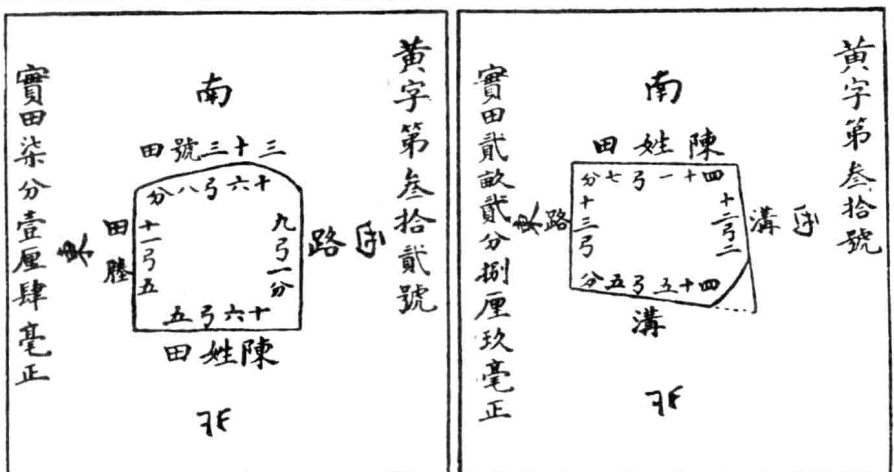 黃字第叁拾號
南
陳姓田
四十一弓七分
十二弓二
溝
西
路
東
十三弓
四十五弓五分
溝
北
實田貳畝貳分捌厘玖毫正
黃字第叁拾貳號
南
三十三號田
十六弓八分
九弓一分
路
西
田塍
東
十一弓五
十六弓五
陳姓田
北
實田柒分壹厘肆毫正